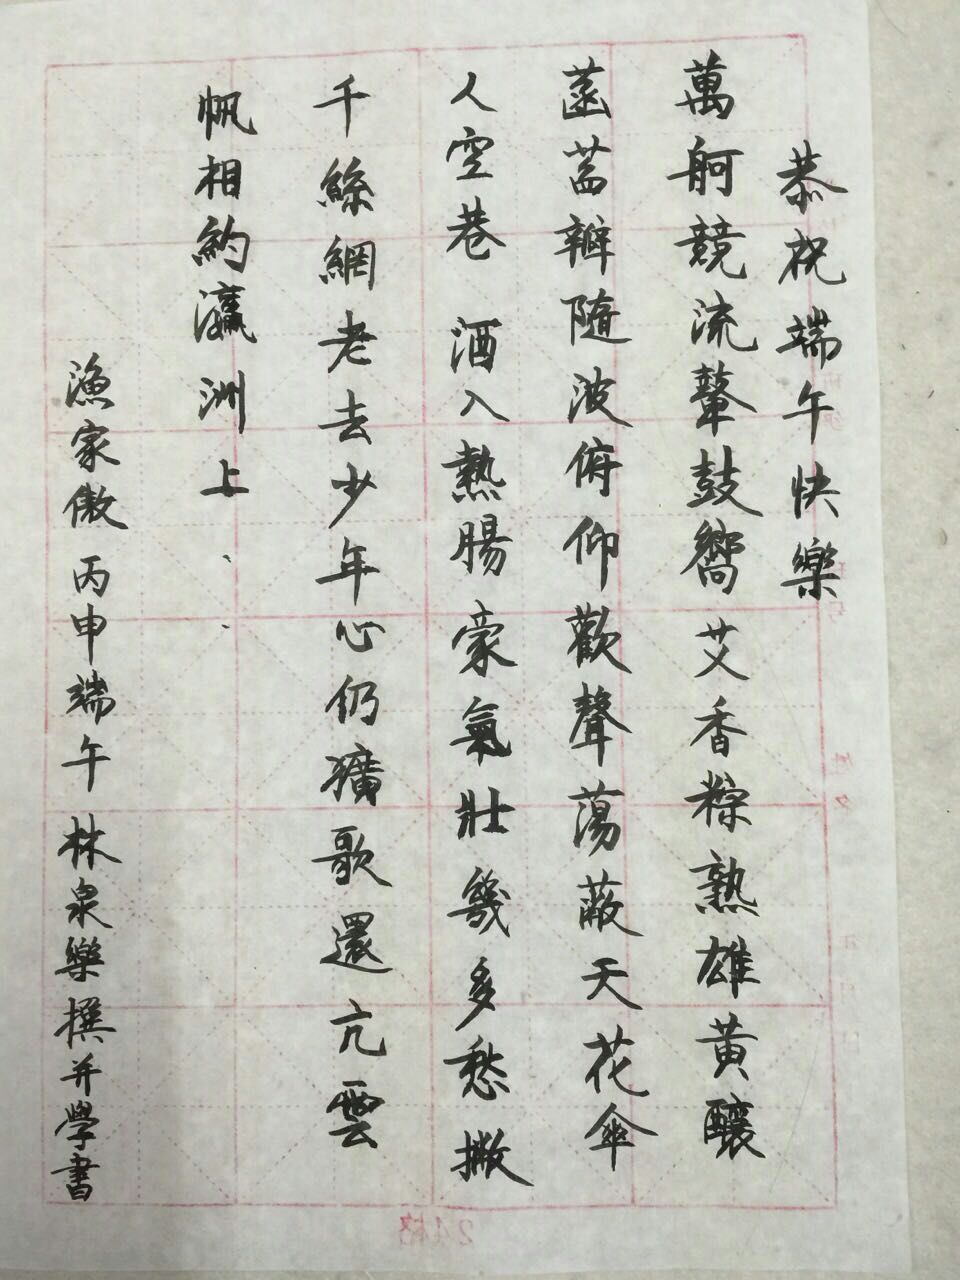 恭祝端午快樂
萬舸競流鼙鼓響艾香粽熟雄黃釀
菡萏瓣隨波俯仰歡聲蕩蔽天花傘
人空巷酒入熱腸豪氣壯幾多愁撒
千絲網老去少年心仍獷歌還亢雲
帆相約瀛洲上
漁家傲丙申端午林泉樂撰并學書